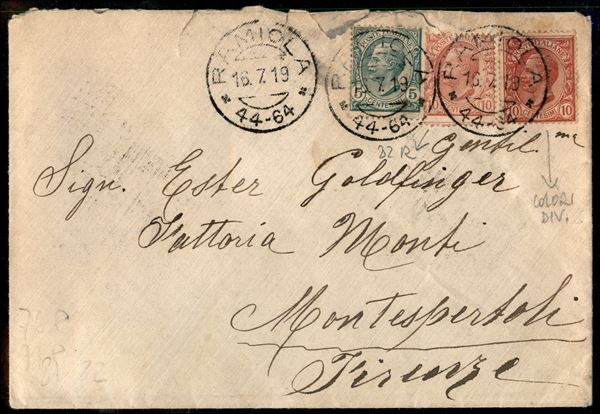 RAMIOLA
16.7.19
44-64
RAMIOLA
16.7.19
44-64
RAMIOLA
16.7.19
44-64
5 5
CENTESIMI
10
10
82 R
Gentil.ma
Sign. Ester Goldfinger
COLORI
DIV.
Fattoria Monti
Montespertoli
Firenze